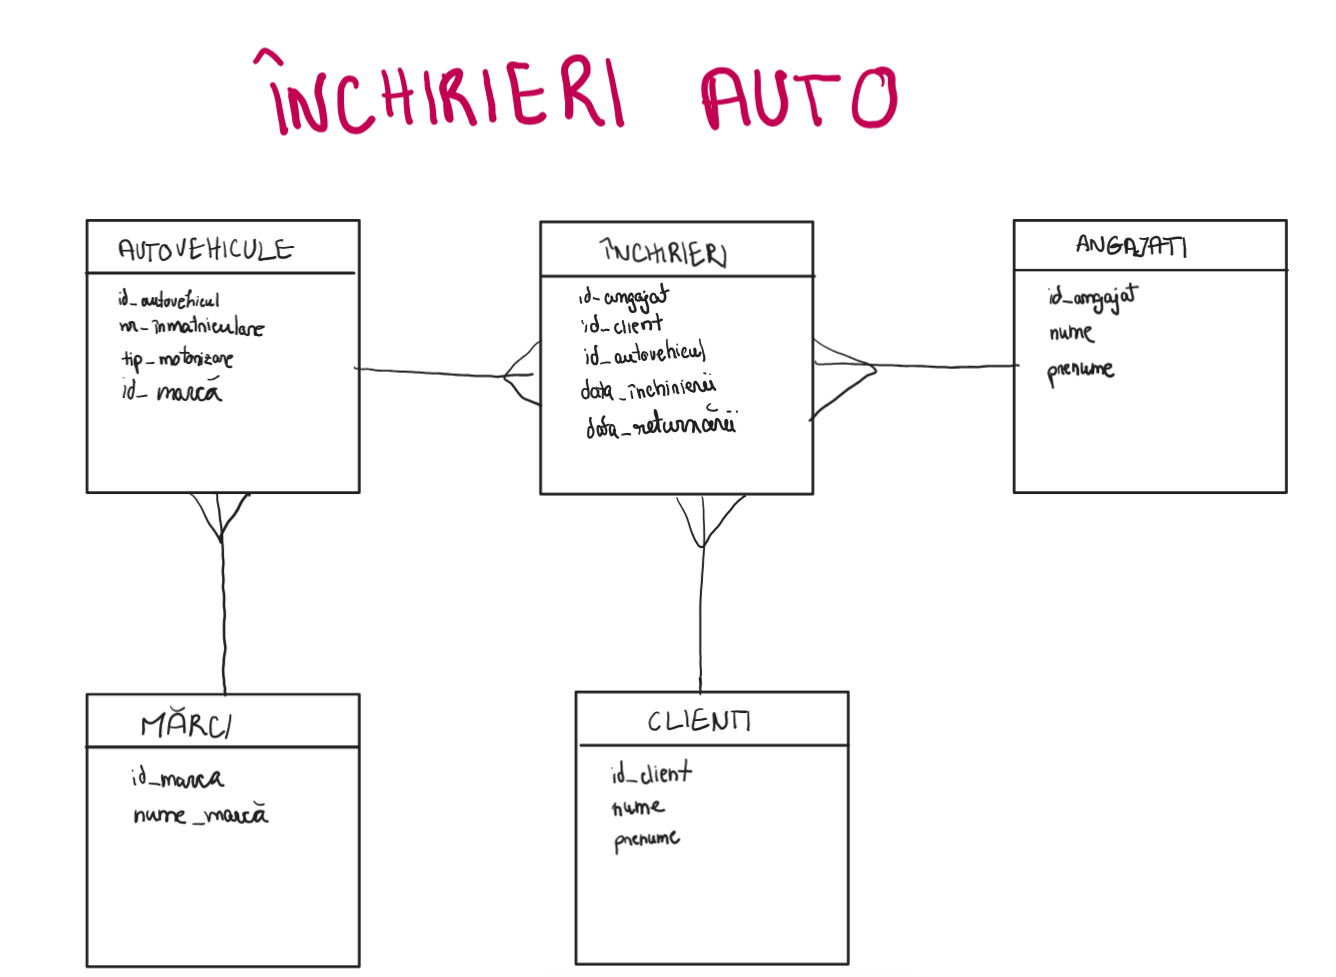 ÎNCHIRIERI AUTO
AUTOVEHICULE
id_autovehicul
nr_înmatriculare
tip_motorizare
id_marcă
ÎNCHIRIERI
id_angajat
id_client
id_autovehicul
data_închirierii
data_returnării
ANGAJATI
id_angajat
nume
prenume
MĂRCI
id_marca
nume_marcă
CLIENTI
id_client
nume
prenume